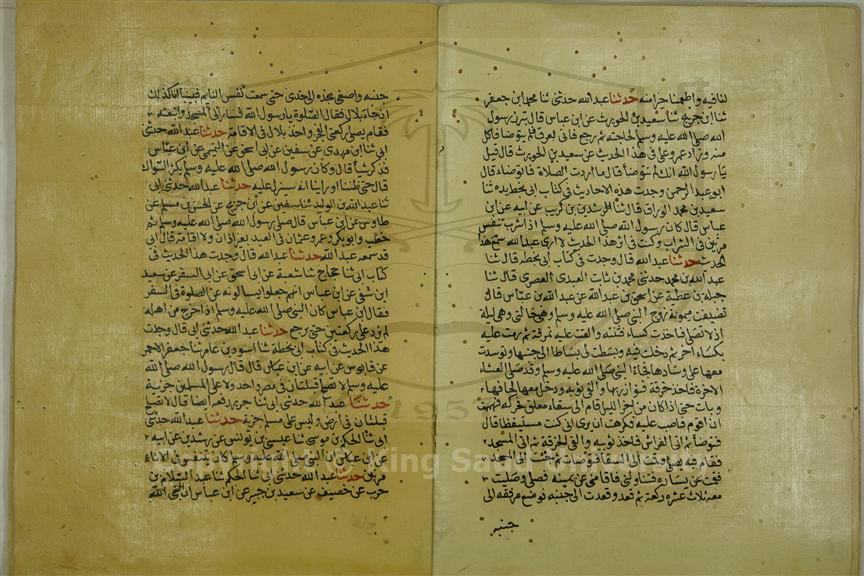 لنا فيه واطعمنا خيرا منه حدثنا عبد الله حدثني ثنا محمد بن جعفر
ثنا ابن جريج ثنا سعيد بن الحويرث عن ابن عباس قال تبرز رسول
الله صلى الله عليه وسلم لحاجته ثم رجع فاتى بعرق فلم يتوضا فاكل
منه وزاد عمرو على في هذا الحديث عن سعيد بن الحويرث قال قيل
يا رسول الله انك لم تتوضا قال ما اردت الصلاة فاتوضا قال
ابو عبد الرحمن وجدت هذه الاحاديث في كتاب ابي بخط يده ثنا
سعيد بن محمد الوراق قال ثنا رشدين بن كريب عن ابيه عن ابن
عباس قال كان رسول الله صلى الله عليه وسلم اذا شرب تنفس
مرتين في الشراب وكتب في اثر هذا الحديث لا ارى عبد الله سمع هذا
الحديث حدثنا عبد الله قال وجدت في كتاب ابي بخطه قال ثنا
عبد الله بن محمد حدثني محمد بن ثابت العبدي العصري قال ثنا
جبلة بن عطية عن اسحق بن عبد الله عن عبد الله بن عباس قال
تضيفت ميمونة زوج النبي صلى الله عليه وسلم وهي خالتي وهي ليلة
اذ لا تصلي فاخذت كساء فثنته والقت عليه نمرقة ثم رمت عليه
بكساء اخر ثم دخلت فيه وبسطت لي بساطا الى جنبها وتوسدت
معها على وسادها فجاء النبي صلى الله عليه وسلم وقد صلى العشاء
الاخرة فاخذ خرقة فتوازر بها والقى ثوبيه ودخل معها لحافها
وبات حتى اذا كان من اخر الليل قام الى سقاء معلق فحركه فهممت
ان اقوم فاصب عليه فكرهت ان يرى اني كنت مستيقظا قال
فتوضا ثم اتى الفراش فاخذ ثوبيه والقى الخرقة ثم اتى المسجد
فقام فيه يصلي وقمت الى السقاء فتوضات ثم جئت الى المسجد
فقمت عن يساره فتناولني فاقامني عن يمينه فصلى وصليت
معه ثلاث عشره ركعة ثم قعد وقعدت الى جنبه فوضع مرفقه الى
جنبه
جنبه واصغى بخده الى خدي حتى سمعت نفس النايم فبينا انا كذلك
اذ جاء بلال فقال الصلوة يا رسول الله فسار الى المسجد واتبعته
فقام يصلي ركعتي الفجر واخذ بلال في الاقامة حدثنا عبد الله حدثني
ابي ثنا ابن مهدي عن سفين عن ابي اسحق عن التيمي عن ابن عباس
قال وكان رسول الله صلى الله عليه وسلم يكثر السواك
قال حتى ظننا او راينا انه سينزل عليه حدثنا عبد الله حدثني ابي
ثنا عبد الله بن الوليد ثنا سفين عن ابن جريج عن الحسن بن مسلم عن
طاوس عن ابن عباس قال صلى رسول الله صلى الله عليه وسلم ثم
خطب وابو بكر وعمر وعثمان في العيد بغير اذان ولا اقامة قال ابي
قد سمعه عبد الله حدثنا عبد الله قال وجدت هذا الحديث في
كتاب ابي ثنا حجاج ثنا شعبة عن ابي اسحق عن ابي السفر عن سعيد
ابن شفي عن ابن عباس انهم جعلوا يسالونه عن الصلوة في السفر
فقال ابن عباس كان النبي صلى الله عليه وسلم اذا خرج من اهله
لم يزد على ركعتين حتى رجع حدثنا عبد الله حدثني ابي قال وجدت
هذا الحديث في كتاب ابي بخطه ثنا اسود بن عامر ثنا جعفر الاحمر
عن قابوس عن ابيه عن ابن عباس قال قال رسول الله صلى الله
عليه وسلم لا تصلح قبلتان في مصر واحد ولا على المسلمين جزية
حدثنا عبد الله حدثني ابي ثنا جرير رفعه ايضا قال لا تصلح
قبلتان في ارض وليس على مسلم جزية حدثنا عبد الله حدثني
ابي ثنا الحكم بن موسى ثنا عيسى بن يونس عن رشدين عن ابيه
عن ابن عباس ان النبي صلى الله عليه وسلم كان يتنفس في الاناء
مرتين حدثنا عبد الله حدثني ابي ثنا الحكم ثنا عبد السلام بن
حرب عن خصيف عن سعيد بن جبير عن ابن عباس ان النبي
1957
Copyright © King Saud University